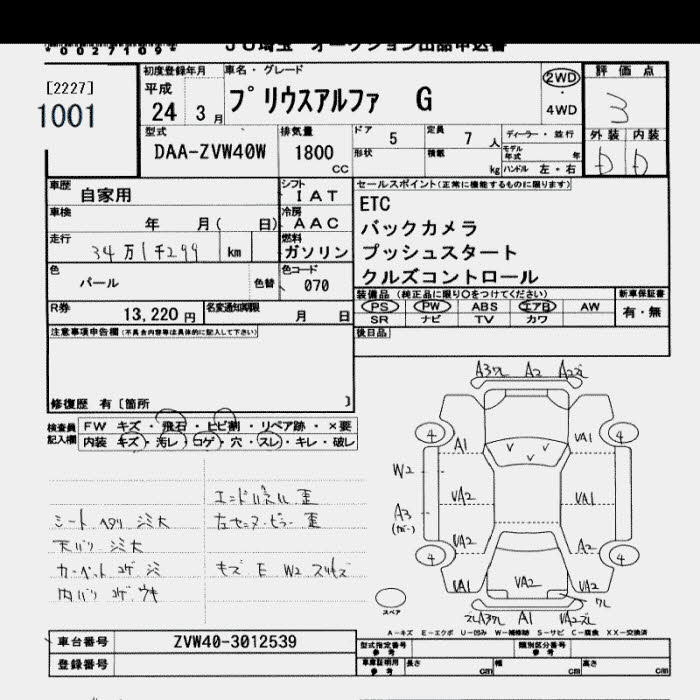 *0027109*
JU埼玉 オークション出品申込書
[2227]
1001
初度登録年月
平成
24 3 月
車名・グレード
プリウスアルファ G
2WD
・
4WD
評価点
3
外装 内装
D D
型式
DAA-ZVW40W
排気量
1800
CC
ドア 5
定員 7 人
形状
積載 kg
ディーラー・並行
モデル年式 年
ハンドル 左・右
車歴
自家用
シフト
IAT
車検
年 月( 日)
冷房
AAC
走行
34万1千299 km
燃料
ガソリン
色
パール
色替
色コード
070
R券
13,220 円
名変通知期限
月 日
セールスポイント(正常に機能するものに限ります)
ETC
バックカメラ
プッシュスタート
クルズコントロール
装備品 (純正品に限り○をつけてください)
PS PW ABS エアB AW
SR ナビ TV カワ
新車保証書
有・無
後日品
注意事項申告欄(不具合内容等は具体的に記入して下さい)
修復歴 有〔箇所 〕
検査員
記入欄
FW キズ・飛石・ヒビ割・リペア跡・×要
内装 キズ・汚レ・コゲ・穴・スレ・キレ・破レ
シート ヘタリ シミ大
天バリ シミ大
カーペット コゲ シミ
内バリ コゲ ウキ
エンドパネル 歪
左センターピラー 歪
キズ E W2 スリキズ
A2
4 A1 VA1 4
W2
VA2 VA1
A3
(カバー)
VA2 A2
4 4
VA1 VA2 VA2
ワレ
A1
スペア
A-キズ E-エクボ U-凹み W-補修跡 S-サビ C-腐食 XX-交換済
車台番号
ZVW40-3012539
登録番号
型式指定番号
参考
類別区分番号
参考
車庫証明用
参考
長さ cm
幅 cm
高さ cm